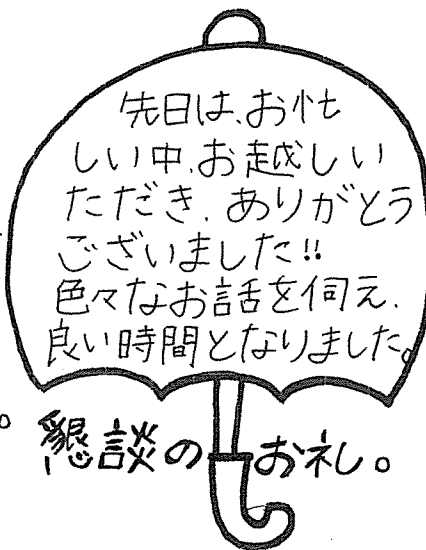 先日は、お忙
しい中、お越しい
ただき、ありがとう
ございました!!
色々なお話を伺え、
良い時間となりました。
懇談のお礼。